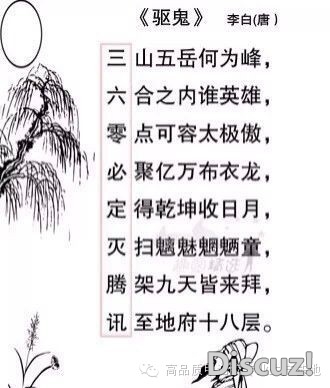 《驱鬼》 李白(唐)
三山五岳何为峰，
六合之内谁英雄，
零点可容太极傲，
必聚亿万布衣龙，
定得乾坤收日月，
灭扫魑魅魍魉童，
腾架九天皆来拜，
讯至地府十八层。
Discuz!